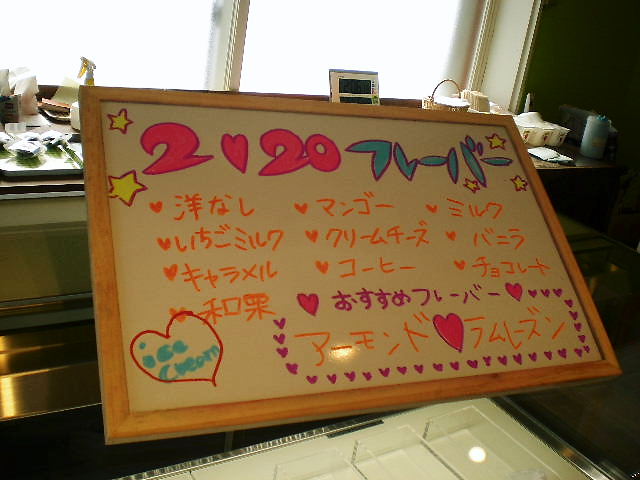 2♥20 フレーバー
♥洋なし ♥マンゴー ♥ミルク
♥いちごミルク ♥クリームチーズ ♥バニラ
♥キャラメル ♥コーヒー ♥チョコレート
♥和栗
♥おすすめフレーバー♥
アーモンド♥ラムレーズン
ice
Cream